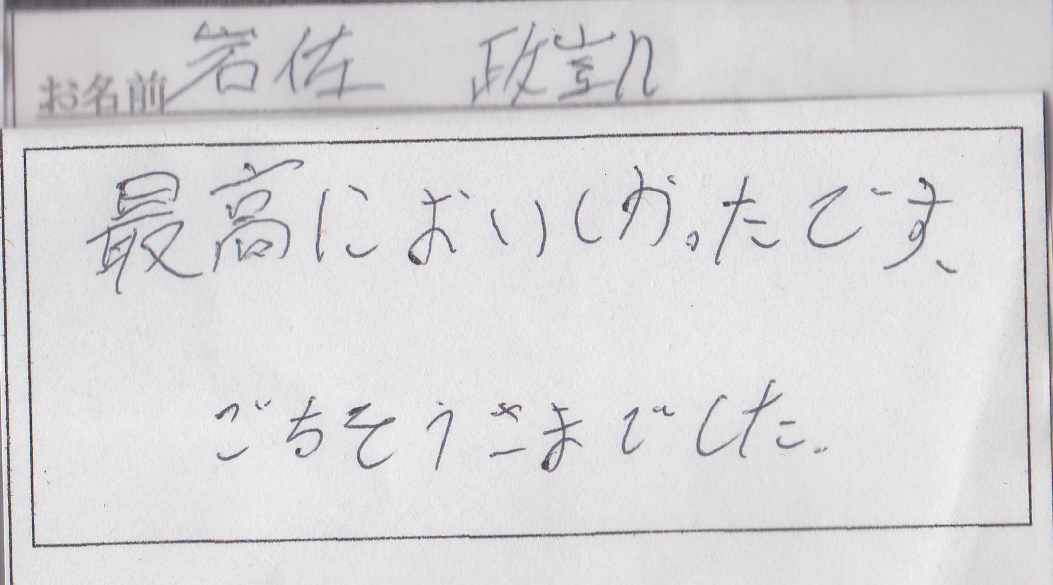 お名前 岩佐 政凱
最高においしかったです、
ごちそうさまでした.